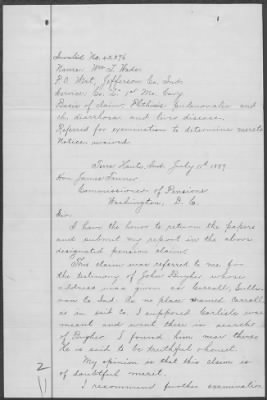 Invalid No. 42876
Name: Wm T. Wade
P.O. West, Jefferson Co. Ind.
Service: Co. "D" 1st Mo. Cavy
Basis of claim: Phthisis pulmonalis and
ch. diarrhoea and liver disease.
Referred for examination to determine merits
Notice: waived
Terre Haute, Ind. July 11th 1889
Hon James Tanner
Commissioner of Pensions
Washington, D. C.
Sir:
I have the honor to return the papers
and submit my report in the above
designated pension claim.
This claim was referred to me for
the testimony of John Bugher whose
address was given as Carrall, Sulli-
van Co Ind. As no place named Carroll
is in said Co. I supposed Carlisle was
meant and went there in search
of Bugher. I found him near there.
He is said to be truthful & honest.
My opinion is that this claim is
of doubtful merit.
I recommend further examination
2